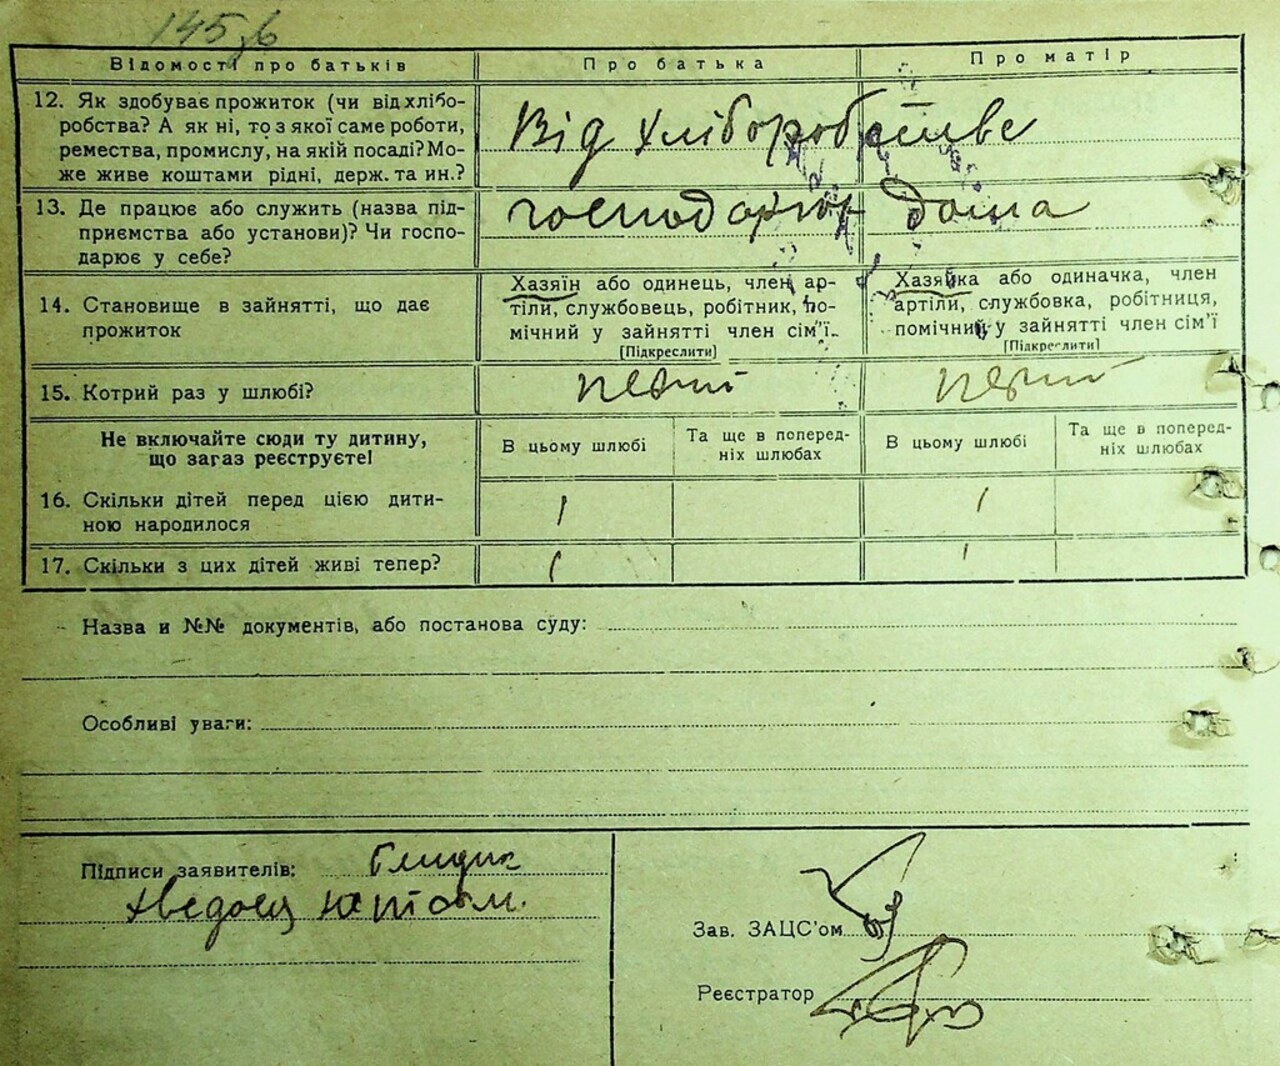 145 зв
Відомості про батьків Про батька Про матір
12. Як здобуває прожиток (чи від хлібо-
робства? А як ні, то з якої саме роботи,
ремества, промислу, на якій посаді? Мо-
же живе коштами рідні, держ. та ин.?
Від хліборобства
13. Де працює або служить (назва під-
приємства або установи)? Чи госпо-
дарює у себе?
дома
14. Становище в зайнятті, що дає
прожиток
Хазяїн або одинець, член ар-
тіли, службовець, робітник, по-
мічний у зайнятті член сім'ї
[Підкреслити]
Хазяйка або одиначка, член
артіли, службовка, робітниця,
помічний у зайнятті член сім'ї
[Підкреслити]
15. Котрий раз у шлюбі?
Не включайте сюди ту дитину,
що загаз реєструєте!
В цьому шлюбі
Та ще в поперед-
ніх шлюбах
В цьому шлюбі
Та ще в поперед-
ніх шлюбах
16. Скільки дітей перед цією дити-
ною народилося
1 1
17. Скільки з цих дітей живі тепер?
1 1
Назва и №№ документів, або постанова суду:
Особливі уваги:
Підписи заявителів:
Зав. ЗАЦС'ом
Реєстратор